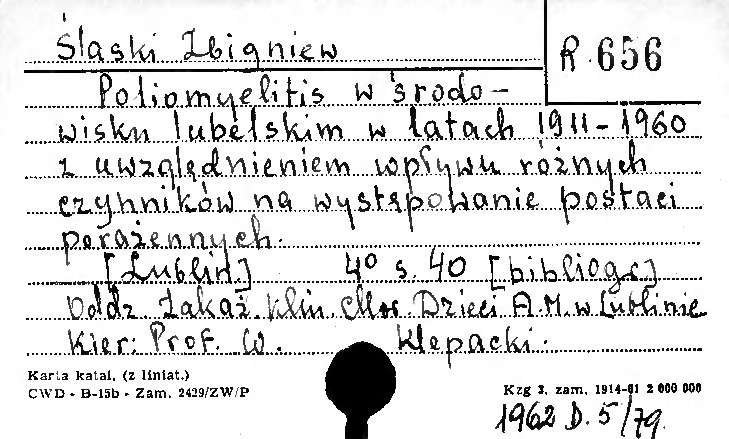 Ślaski Zbigniew
R 656
Poliomyelitis w środo-
wisku lubelskim w latach 1911-1960
z uwzględnieniem wpływu różnych
czynników na występowanie postaci
porażennych.
[Lublin] 4° s. 40 [bibliogr]
Oddz. Zakaź. Klin. Chor. Dzieci A.M. w Lublinie
Kier: Prof. W. Klepacki.
Karta katal. (z liniat.)
CWD - B-15b - Zam. 2429/ZW/P
Kzg 3, zam. 1914-61 2 000 000
1962 D. 5/79.